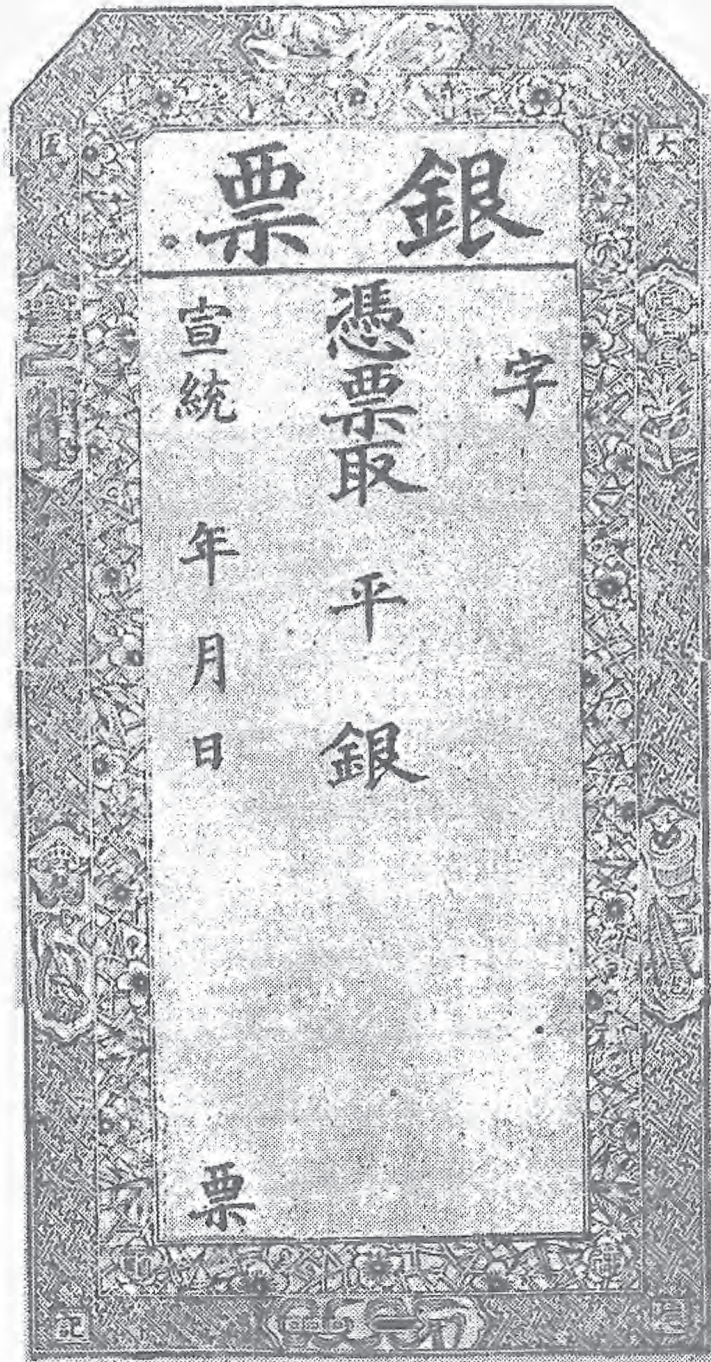 銀票
字
憑票取 平 銀
宣統 年 月 日
票
大
記